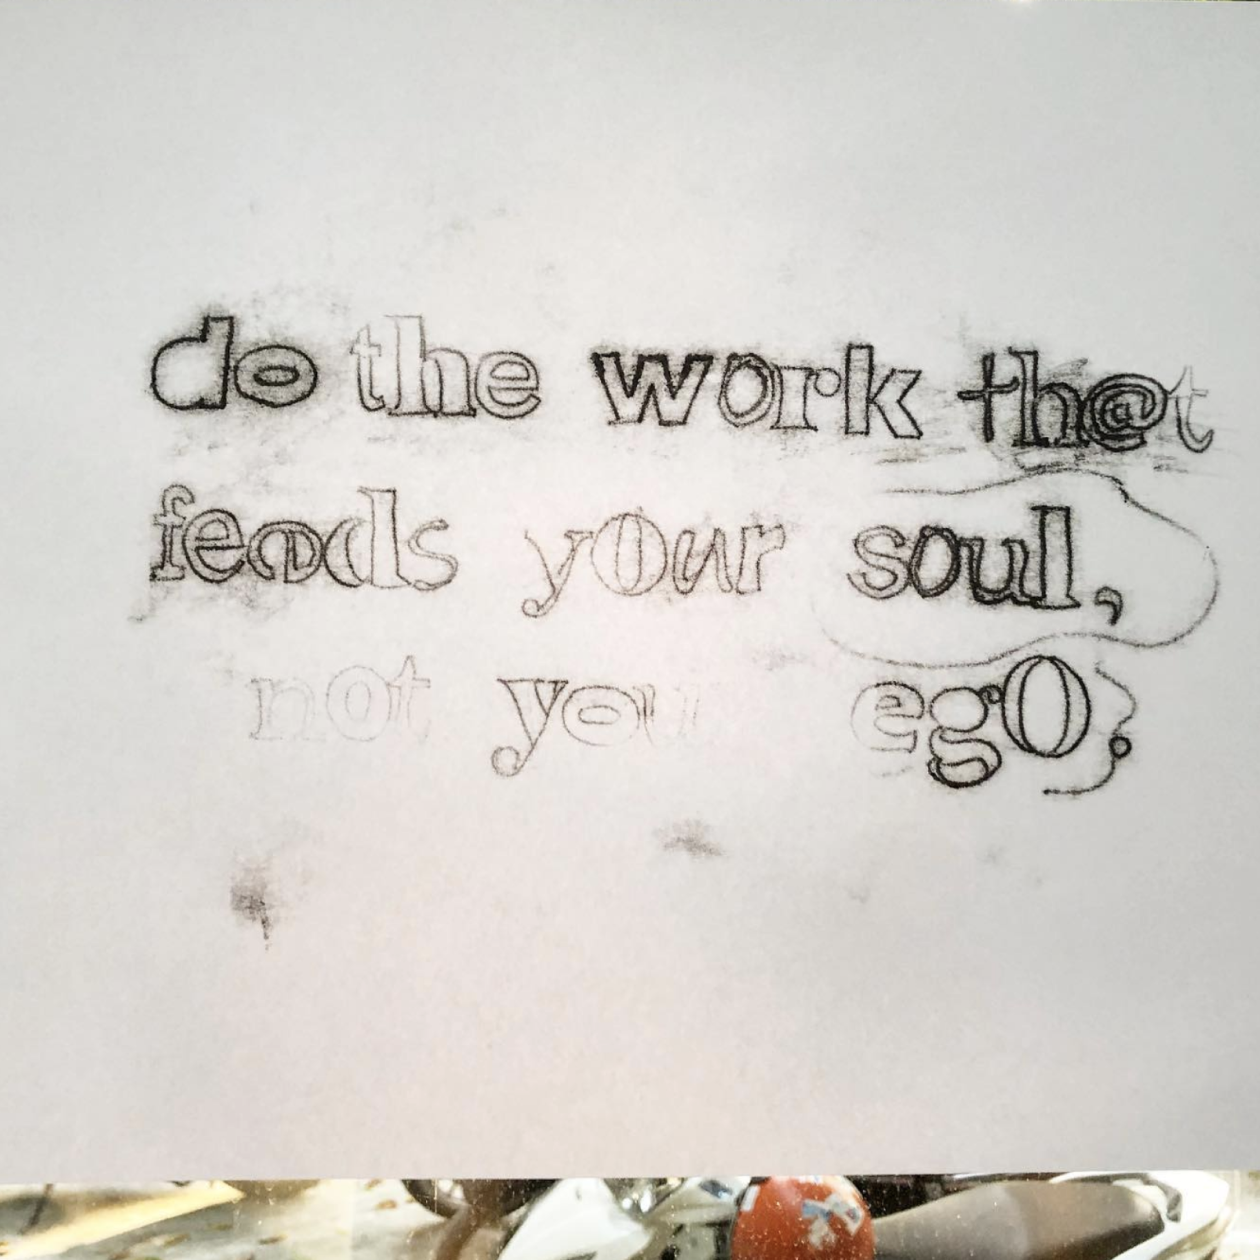 do the work th@t
feeds your soul,
not your egO;